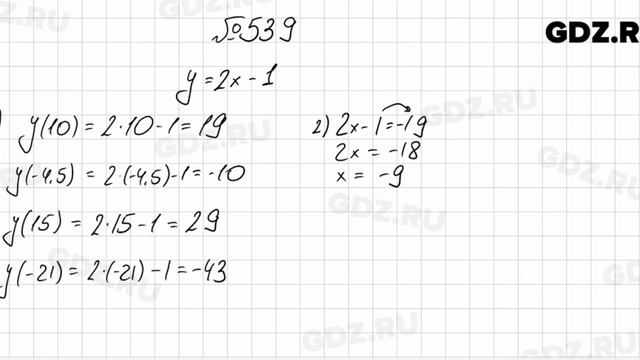 №539
GDZ.R
y=2x-1
y(10)=2·10-1=19
y(-4,5)=2·(-4,5)-1=-10
y(15)=2·15-1=29
y(-21)=2·(-21)-1=-43
2) 2x-1=-19
2x=-18
x=-9
GDZ.RU
GDZ.RU
GDZ.RU
GDZ.RU
GDZ.RU